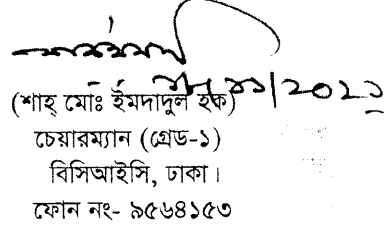 (শাহ্ মোঃ ইমদাদুল হক)
চেয়ারম্যান (গ্রেড-১)
বিসিআইসি, ঢাকা।
ফোন নং- ৯৫৬৪১৫৩